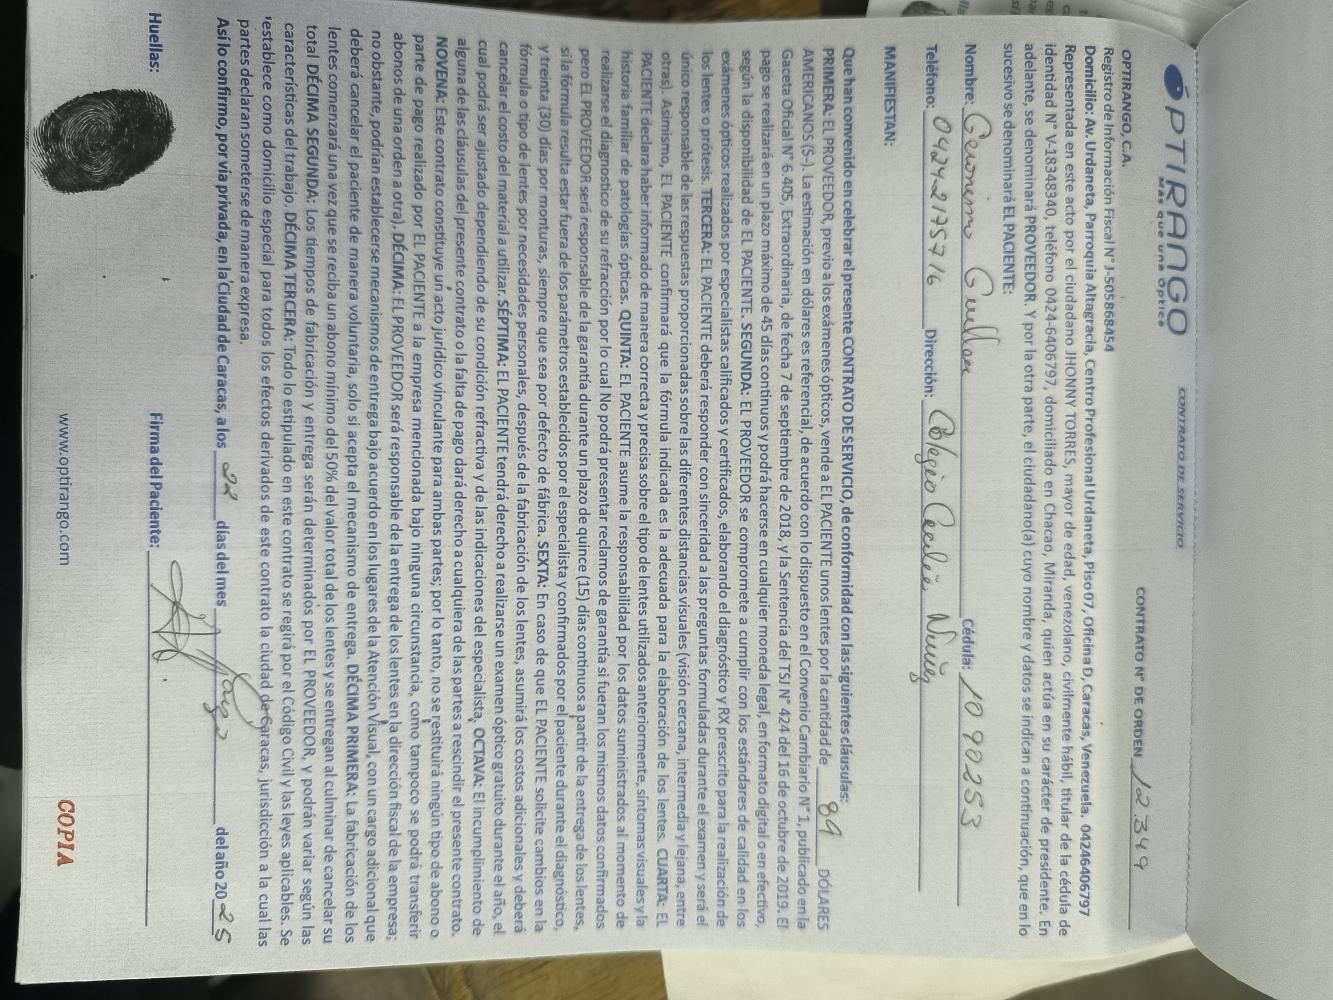 ÓPTIRANGO
Más que una Óptica
CONTRATO DE SERVICIO
CONTRATO N° DE ORDEN 12.349
OPTIRANGO, C.A.
Registro de Información Fiscal N° J-505868454
Domicilio: Av. Urdaneta, Parroquia Altagracia, Centro Profesional Urdaneta, Piso 07, Oficina D, Caracas, Venezuela. 04246406797
Representada en este acto por el ciudadano JHONNY TORRES, mayor de edad, venezolano, civilmente hábil, titular de la cédula de
identidad N° V-18348340, teléfono 0424-6406797, domiciliado en Chacao, Miranda, quien actúa en su carácter de presidente. En
adelante, se denominará PROVEEDOR. Y por la otra parte, el ciudadano(a) cuyo nombre y datos se indican a continuación, que en lo
sucesivo se denominará EL PACIENTE:
Nombre: Geronimo Guillen Cédula: 10 90253
Teléfono: 04242175716 Dirección: Colegio Cecilio Nuñez
MANIFIESTAN:
Que han convenido en celebrar el presente CONTRATO DE SERVICIO, de conformidad con las siguientes cláusulas:
PRIMERA: EL PROVEEDOR, previo a los exámenes ópticos, vende a EL PACIENTE unos lentes por la cantidad de 89 DÓLARES
AMERICANOS ($-). La estimación en dólares es referencial, de acuerdo con lo dispuesto en el Convenio Cambiario N° 1, publicado en la
Gaceta Oficial N° 6.405, Extraordinaria, de fecha 7 de septiembre de 2018, y la Sentencia del TSJ N° 424 del 16 de octubre de 2019. El
pago se realizará en un plazo máximo de 45 días continuos y podrá hacerse en cualquier moneda legal, en formato digital o en efectivo,
según la disponibilidad de EL PACIENTE. SEGUNDA: EL PROVEEDOR se compromete a cumplir con los estándares de calidad en los
exámenes ópticos realizados por especialistas calificados y certificados, elaborando el diagnóstico y RX prescrito para la realización de
los lentes o prótesis. TERCERA: EL PACIENTE deberá responder con sinceridad a las preguntas formuladas durante el examen y será el
único responsable de las respuestas proporcionadas sobre las diferentes distancias visuales (visión cercana, intermedia y lejana, entre
otras). Asimismo, EL PACIENTE confirmará que la fórmula indicada es la adecuada para la elaboración de los lentes. CUARTA: EL
PACIENTE declara haber informado de manera correcta y precisa sobre el tipo de lentes utilizados anteriormente, síntomas visuales y la
historia familiar de patologías ópticas. QUINTA: EL PACIENTE asume la responsabilidad por los datos suministrados al momento de
realizarse el diagnostico de su refracción por lo cual No podrá presentar reclamos de garantía si fueran los mismos datos confirmados
pero EL PROVEEDOR será responsable de la garantía durante un plazo de quince (15) días continuos a partir de la entrega de los lentes,
si la fórmula resulta estar fuera de los parámetros establecidos por el especialista y confirmados por el paciente durante el diagnóstico,
y treinta (30) días por monturas, siempre que sea por defecto de fábrica. SEXTA: En caso de que EL PACIENTE solicite cambios en la
fórmula o tipo de lentes por necesidades personales, después de la fabricación de los lentes, asumirá los costos adicionales y deberá
cancelar el costo del material a utilizar. SÉPTIMA: EL PACIENTE tendrá derecho a realizarse un examen óptico gratuito durante el año, el
cual podrá ser ajustado dependiendo de su condición refractiva y de las indicaciones del especialista. OCTAVA: El incumplimiento de
alguna de las cláusulas del presente contrato o la falta de pago dará derecho a cualquiera de las partes a rescindir el presente contrato.
NOVENA: Este contrato constituye un acto jurídico vinculante para ambas partes; por lo tanto, no se restituirá ningún tipo de abono o
parte de pago realizado por EL PACIENTE a la empresa mencionada bajo ninguna circunstancia, como tampoco se podrá transferir
abonos de una orden a otra). DÉCIMA: EL PROVEEDOR será responsable de la entrega de los lentes en la dirección fiscal de la empresa;
no obstante, podrían establecerse mecanismos de entrega bajo acuerdo en los lugares de la Atención Visual, con un cargo adicional que
deberá cancelar el paciente de manera voluntaria, solo si acepta el mecanismo de entrega. DÉCIMA PRIMERA: La fabricación de los
lentes comenzará una vez que se reciba un abono mínimo del 50% del valor total de los lentes y se entregan al culminar de cancelar su
total DÉCIMA SEGUNDA: Los tiempos de fabricación y entrega serán determinados por EL PROVEEDOR, y podrán variar según las
características del trabajo. DÉCIMA TERCERA: Todo lo estipulado en este contrato se regirá por el Código Civil y las leyes aplicables. Se
establece como domicilio especial para todos los efectos derivados de este contrato la ciudad de Caracas, jurisdicción a la cual las
partes declaran someterse de manera expresa.
Así lo confirmo, por vía privada, en la Ciudad de Caracas, a los 22 días del mes Mayo del año 2025
Huellas: Firma del Paciente:
www.optirango.com
COPIA